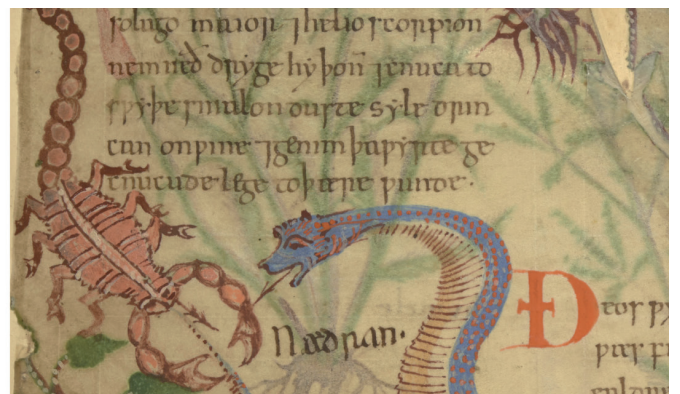 solago maior ⁊ helioscorpion
nemned drýge hý þoñ ⁊ cnuca to
sƿýþe smalon duste sýle drin
can on ƿine ⁊ genim þa ƿýrte ge
cnucude lege to þære ƿunde·
Nædran·
Ðeos ƿy